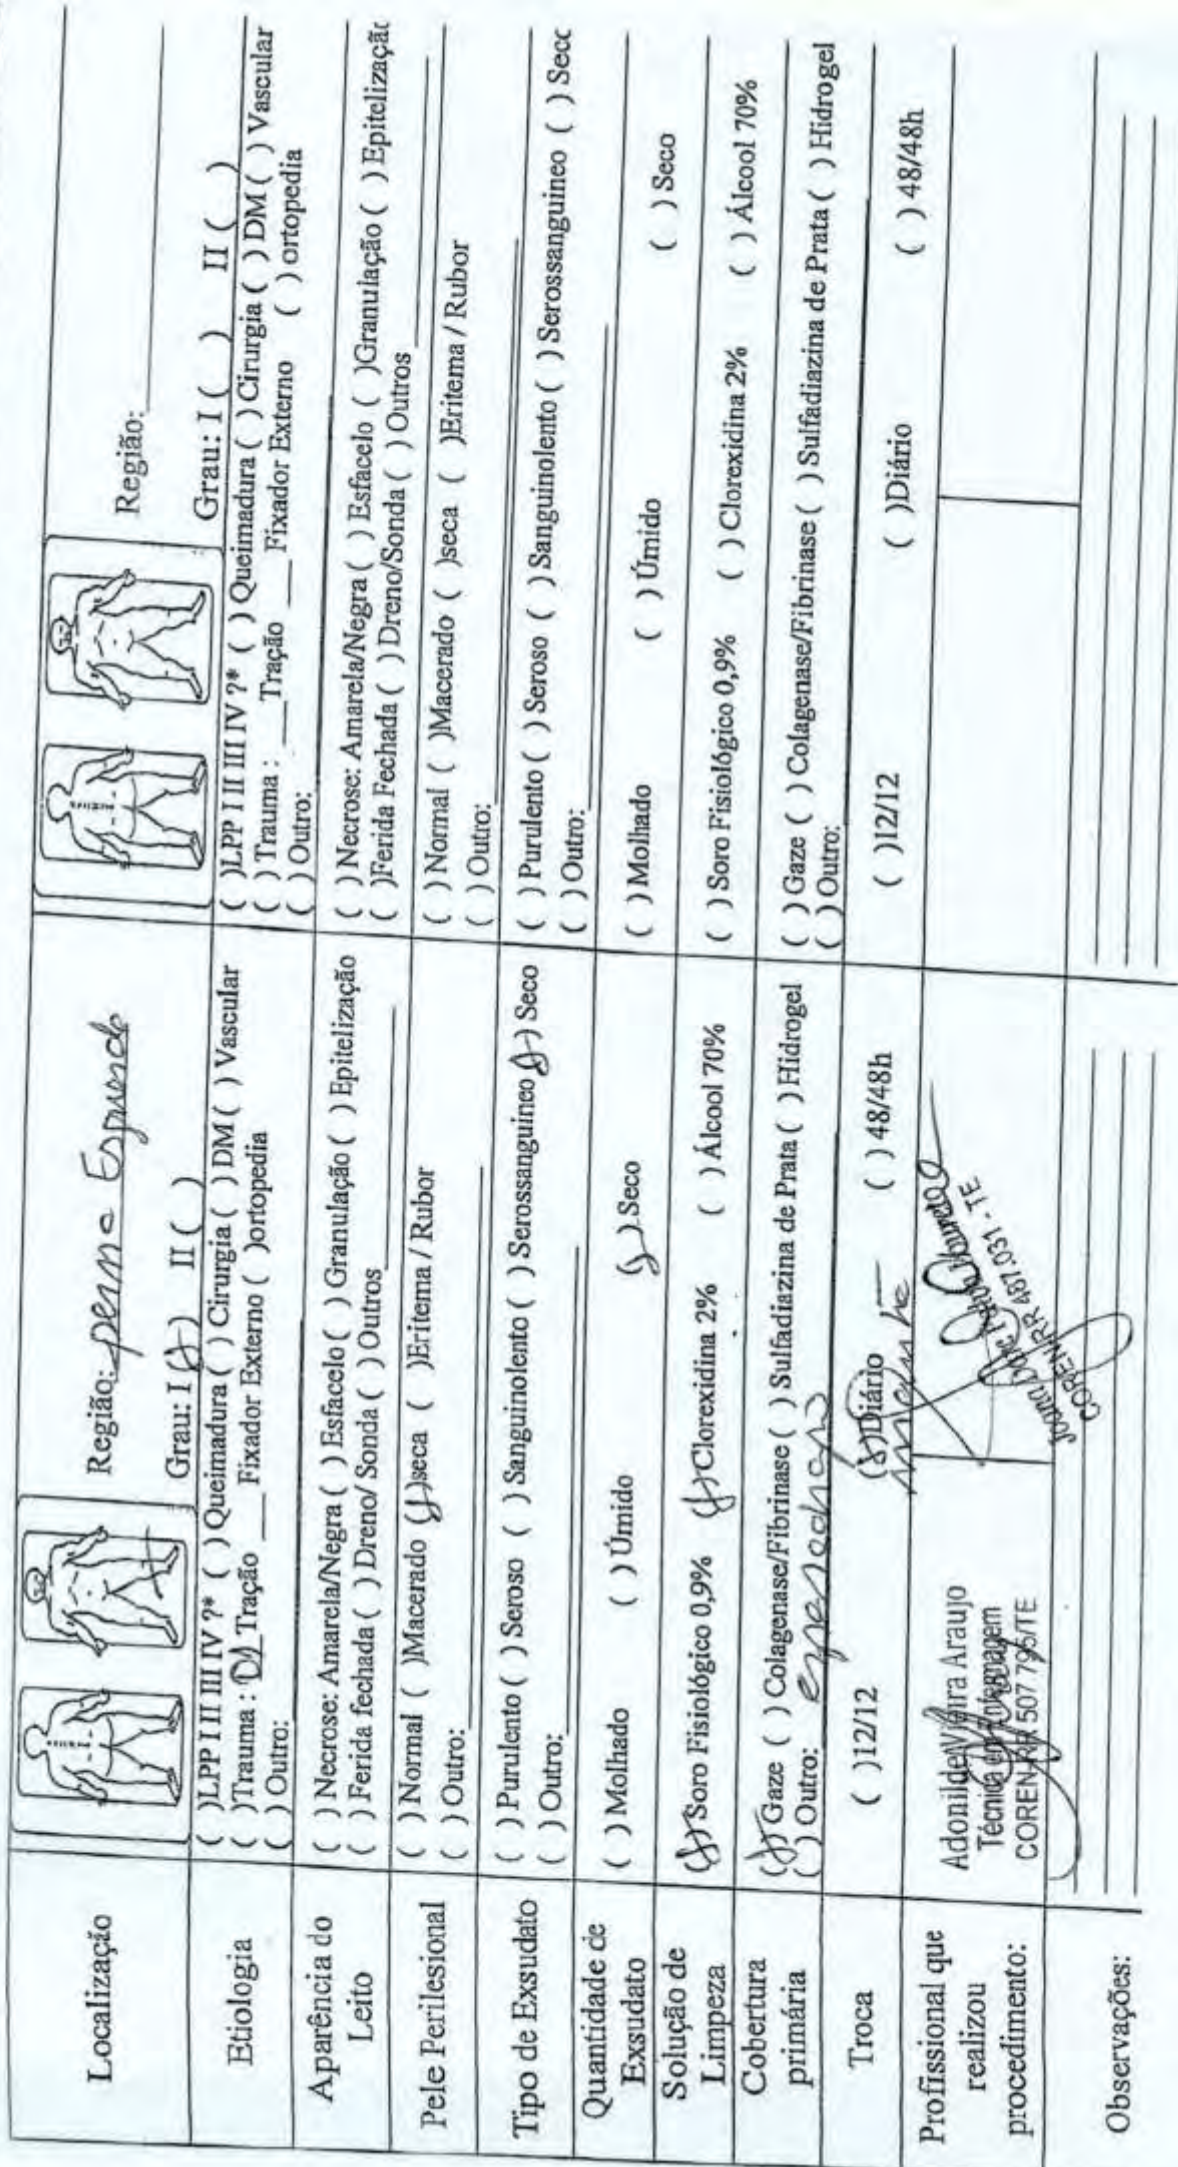 Localização
Região: perna Esquerda
Grau: I (X) II ( )
Região:
Grau: I ( ) II ( )
Etiologia
( )LPP I II III IV ?* ( ) Queimadura ( ) Cirurgia ( ) DM ( ) Vascular
( )Trauma : (X) Tração ___ Fixador Externo ( )ortopedia
( ) Outro:
( )LPP I II III IV ?* ( ) Queimadura ( ) Cirurgia ( ) DM ( ) Vascular
( ) Trauma : ___Tração ___Fixador Externo ( ) ortopedia
( ) Outro:
Aparência do
Leito
( ) Necrose: Amarela/Negra ( ) Esfacelo ( ) Granulação ( ) Epitelização
( ) Ferida fechada ( ) Dreno/ Sonda ( ) Outros
( ) Necrose: Amarela/Negra ( ) Esfacelo ( )Granulação ( ) Epitelização
( )Ferida Fechada ( ) Dreno/Sonda ( ) Outros
Pele Perilesional
( ) Normal ( )Macerado (X)seca ( )Eritema / Rubor
( ) Outro:
( ) Normal ( )Macerado ( )seca ( )Eritema / Rubor
( ) Outro:
Tipo de Exsudato
( ) Purulento ( ) Seroso ( ) Sanguinolento ( ) Serossanguineo (X) Seco
( ) Outro:
( ) Purulento ( ) Seroso ( ) Sanguinolento ( ) Serossanguineo ( ) Secc
( ) Outro:
Quantidade de
Exsudato
( ) Molhado ( ) Úmido (X) Seco
( ) Molhado ( ) Úmido ( ) Seco
Solução de
Limpeza
(X)Soro Fisiológico 0,9% (X)Clorexidina 2% ( ) Álcool 70%
( ) Soro Fisiológico 0,9% ( ) Clorexidina 2% ( ) Álcool 70%
Cobertura
primária
(X)Gaze ( ) Colagenase/Fibrinase ( ) Sulfadiazina de Prata ( ) Hidrogel
( ) Outro:
( ) Gaze ( ) Colagenase/Fibrinase ( ) Sulfadiazina de Prata ( ) Hidrogel
( ) Outro:
Troca
( )12/12 (X)Diário ( ) 48/48h
( )12/12 ( )Diário ( ) 48/48h
Profissional que
realizou
procedimento:
Adonilde Vieira Araujo
Técnica em Enfermagem
COREN-RR 507 795/TE
COREN/RR 487.031 - TE
Observações: